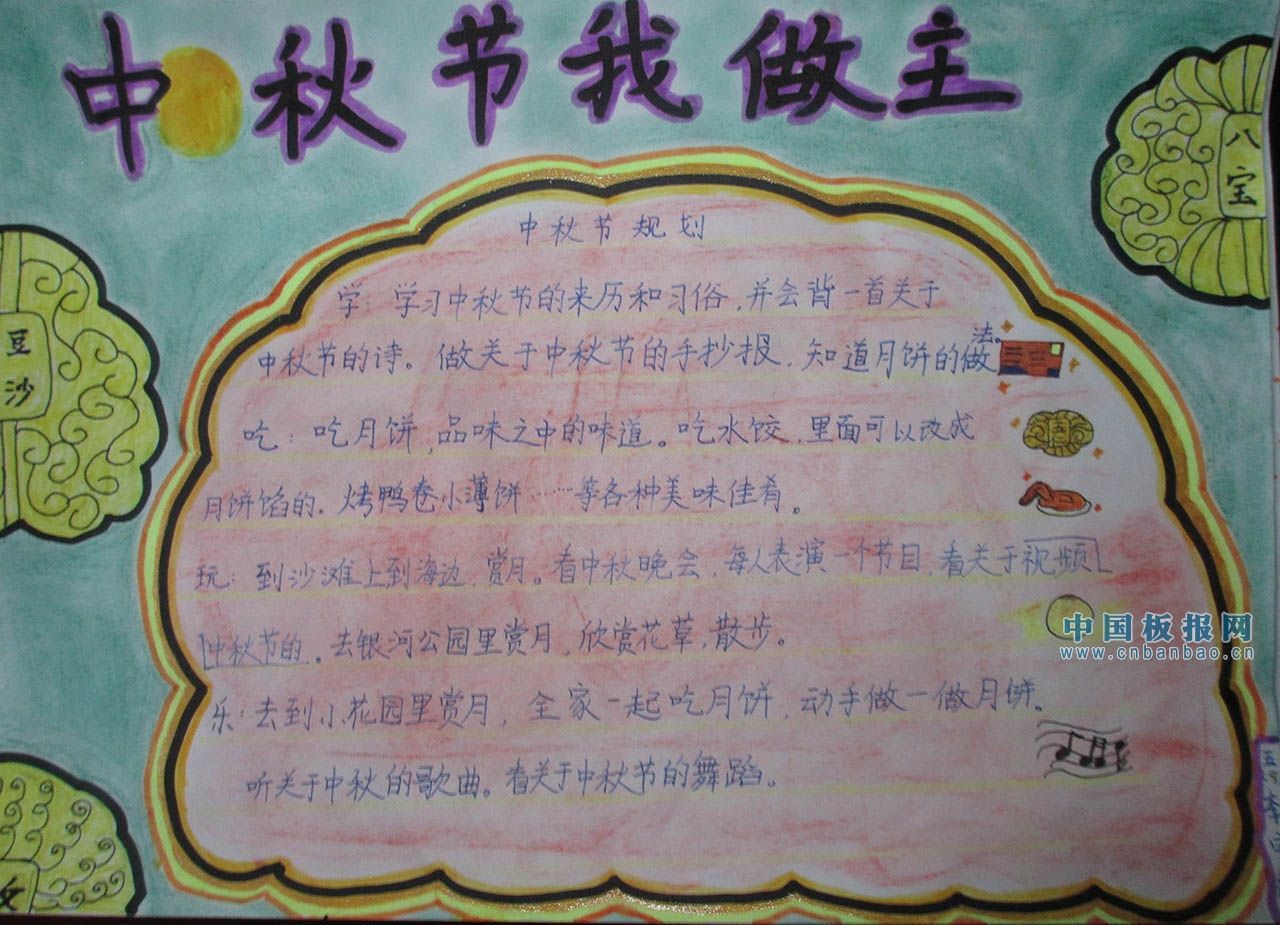 中秋节我做主
八宝
豆沙
中秋节规划
学：学习中秋节的来历和习俗，并会背一首关于
中秋节的诗。做关于中秋节的手抄报，知道月饼的做法。
吃：吃月饼，品味之中的味道。吃水饺，里面可以改成
月饼馅的．烤鸭卷小薄饼……等各种美味佳肴。
玩：到沙滩上到海边，赏月。看中秋晚会，每人表演一个节目，看关于视频
中秋节的。去银河公园里赏月，欣赏花草，散步。
乐：去到小花园里赏月，全家一起吃月饼，动手做一做月饼。
听关于中秋的歌曲。看关于中秋节的舞蹈。
中国板报网
www.cnbanbao.cn